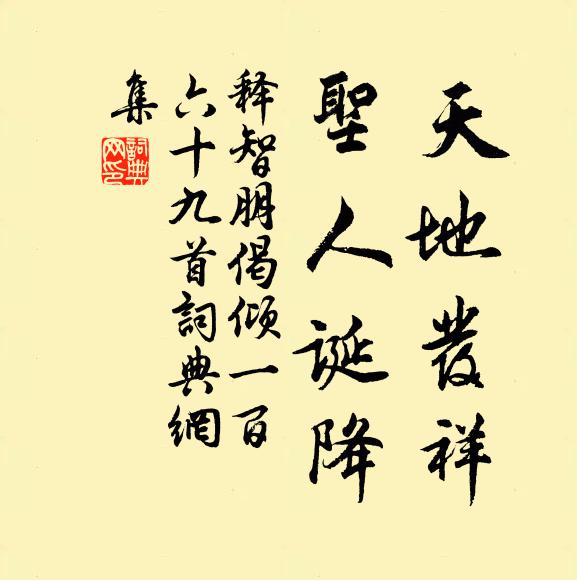 天地發祥
聖人誕降
釋智朋偈傾一百
六十九首詞典網
集
詞典網印